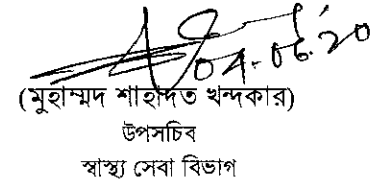 ০৭.০৬.'২০
(মুহাম্মদ শাহাদত খন্দকার)
উপসচিব
স্বাস্থ্য সেবা বিভাগ